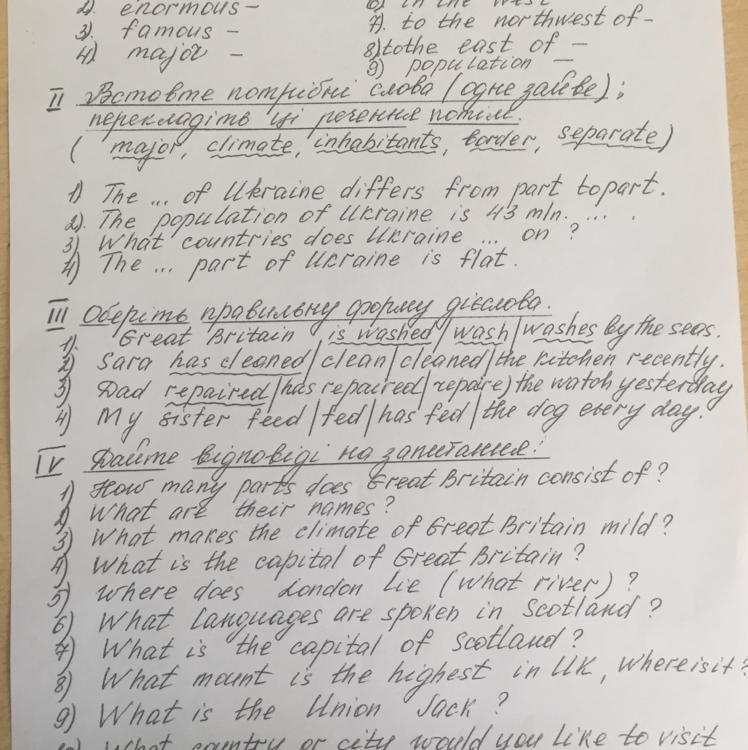 2). enormous -
3). famous -
4). major -
6) in the west
7). to the northwest of -
8) to the east of -
9) population -
II Вставте потрібні слова (одне зайве);
перекладіть ці речення потім.
(major, climate, inhabitants, border, separate)
1) The ... of Ukraine differs from part to part.
2). The population of Ukraine is 43 mln. ... .
3) What countries does Ukraine ... on ?
4) The ... part of Ukraine is flat.
III Оберіть правильну форму дієслова.
1). Great Britain is washed / wash / washes by the seas.
2) Sara has cleaned / clean / cleaned / the kitchen recently.
3) Dad repaired / has repaired / repare) the watch yesterday
4) My sister feed / fed / has fed / the dog every day.
IV Дайте відповіді на запитання:
1) How many parts does Great Britain consist of ?
2) What are their names ?
3) What makes the climate of Great Britain mild ?
4) What is the capital of Great Britain ?
5) Where does London lie (what river) ?
6) What languages are spoken in Scotland ?
7) What is the capital of Scotland ?
8) What mount is the highest in UK, where is it ?
9) What is the Union Jack ?
10) What country or city would you like to visit